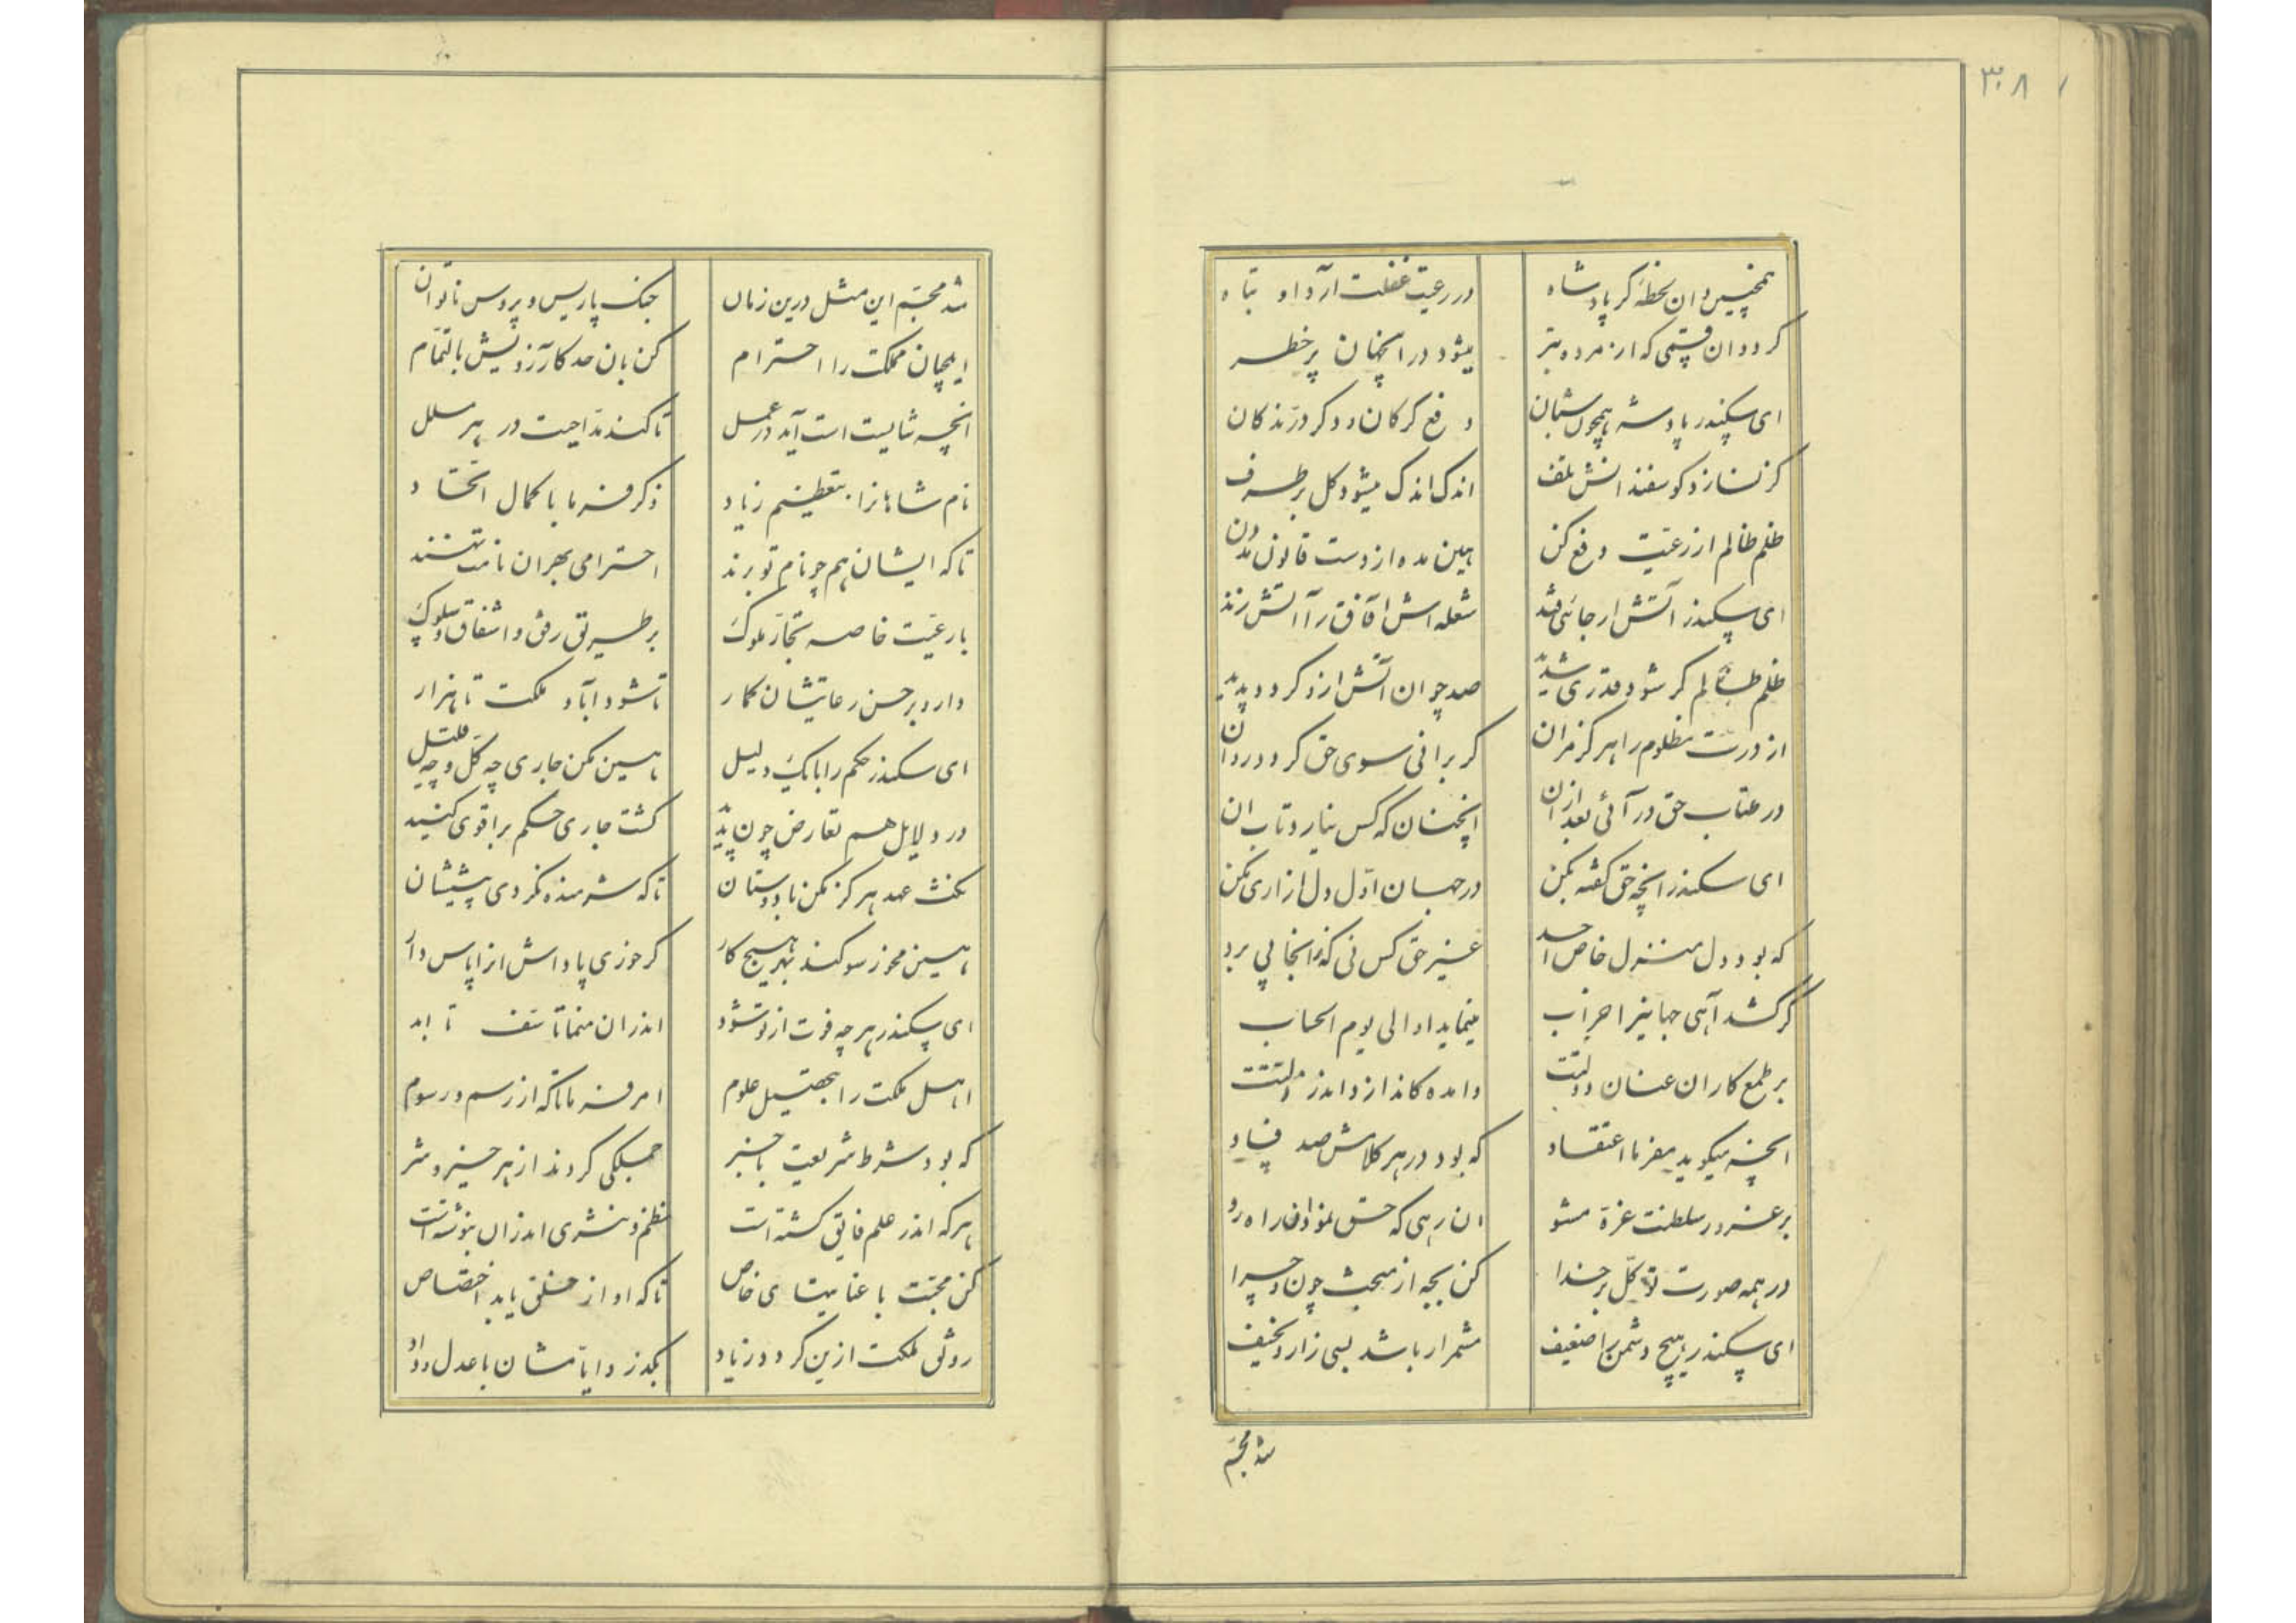 ۳۰۸
همچنین دان لحظهٔ گر پادشاه در رعیت غفلت آرد او تباه
گردد ان قسمی که از مرده بتر میشود در انجهان پر خطر
ای سکندر پادشه همچون شبان دفع گرکان و دکر درّندکان
گر نسازد کوسفندانش تلف اندک اندک میشود کل برطرف
ظلم ظالم از رعیّت دفع کن هین مده از دست قانون
ای سکندر آتش ار جائی فتد شعله اش آفاق را آتش زند
ظلم ظالم گر شود قدری شدید صد چو ان آتش ازو کردد پدید
از درت مظلوم را هرکز مران گر برانی سوی حق کردد روان
در عتاب حق در آئی بعد ازان انچنان که کس نیارد تاب ان
ای سکندر انچه حق گفته بکن در جهان اوّل دل ازاری مکن
که بود دل منزل خاص احد غیر حق کس نی که زانجا پی برد
گر کشد آهی جهانیرا خراب مینماید او الی یوم الحساب
بر طمع کاران عنان دولتت وامده کاندازد اندر ذلتت
انچه میگوید مفرما اعتقاد که بود در هر کلامش صد فساد
بر غرور سلطنت غرّه مشو ان رهی که حق نمود ان راه رو
در همه صورت توکّل بر خدا کن بجه از مبحث چون و چرا
ای سکندر هیچ دشمن را ضعیف مشمر ار باشد بسی زار و نحیف
شد مجسّم
شد مجسّم این مثل درین زمان جنک پاریس و پروس ناتوان
ایلچیان مملکت را احترام کن بان حد کارزویش بالتمام
انچه شایسته است آید در عمل تا کنند مدّاحیت در هر ملل
نام شاهانرا بتعظیم زیاد ذکر فرما با کمال اتّحاد
تا که ایشان هم چو نام تو برند احترامی بهر ان نامت نهند
با رعیّت خاصه تجّار ملوک بر طریق رفق و اشفاق و سلوک
دارد بر حسن رعایتشان کمار تا شود آباد ملکت تا هزار
ای سکندر حکم را با یک دلیل هین مکن جاری چه کلّ و چه قلیل
در دلایل هم تعارض چون پدید کشت جاری حکم بر اقوی کنید
نکث عهد هرکز مکن با دوستان تا که شرمنده نکردی پیششان
هین مخور سوکند بهر هیچ کار گر خوری پاداش ازا پاس دار
ای سکندر هر چه فوت از تو شود اندران منما تأسّف تا ابد
اهل ملکت را بتحصیل علوم امر فرما تا که از رسم و رسوم
که بود شرط شریعت باخبر جملگی کردند از هر خیر و شر
هر که اندر علم فایق کشته است نظم و نثری اندران بنوشته است
کن محبّت با عنایتهای خاص تا که او از خلق یابد اختصاص
رونق ملکت ازین کردد زیاد بگذرد ایّامشان با عدل و داد